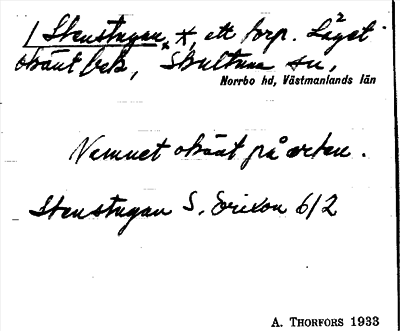 / Stenstugan, *, ett torp. Läget
okänt bek, Skultuna sn,
Norrbo hd, Västmanlands län
Namnet okänt på orten.
Stenstugan S. Erixon 6/2
A. THORFORS 1933